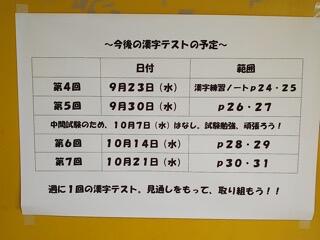 ～今後の漢字テストの予定～
日付 範囲
第4回 9月23日（水） 漢字練習ノートp24・25
第5回 9月30日（水） p26・27
中間試験のため、10月7日（水）はなし。試験勉強、頑張ろう！
第6回 10月14日（水） p28・29
第7回 10月21日（水） p30・31
週に1回の漢字テスト。見通しをもって、取り組もう！！